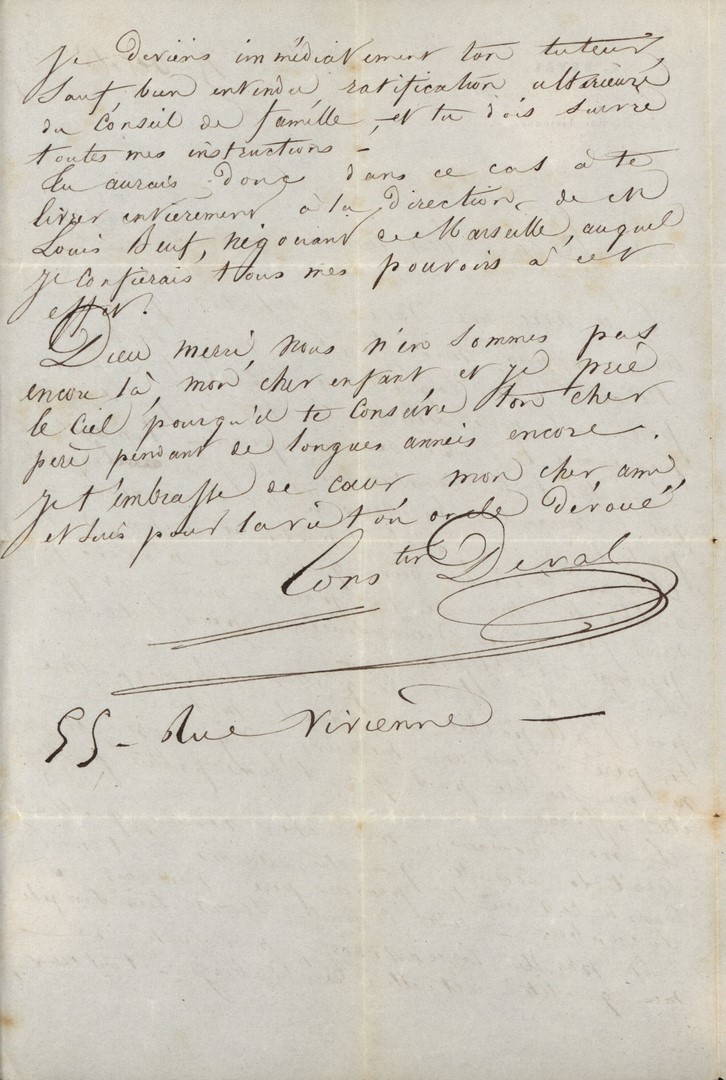 je deviens immédiatement ton tuteur,
sauf bien entendu ratification ultérieure
du Conseil de famille, et tu dois suivre
toutes mes instructions –
Tu aurais donc dans ce cas à te
livrer entièrement à la direction de M
Louis Beuf, négociant de Marseille, auquel
je confierais tous mes pouvoirs à cet
effet.
Dieu merci, nous n'en sommes pas
encore là, mon cher enfant et je prie
le ciel pourqu'il te conserve ton cher
père pendant de longues années encore.
Je t'embrasse de cœur mon cher ami,
et suis pour la vie ton oncle dévoué,
Cons tin Deval
55 – Rue Vivienne –